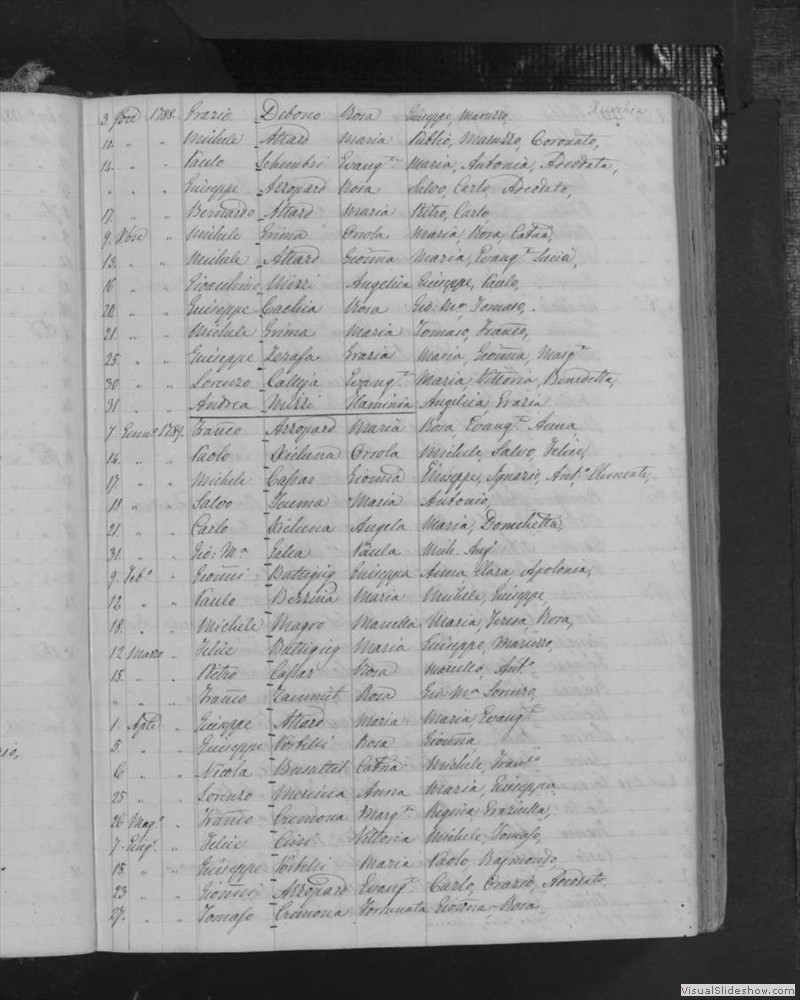 Xewkia
3. 9bre 1788. Grazio Debono Rosa Giuseppe, Maruzzo
10. " " Michele Attard Maria Publio, Maruzzo, Coronato,
14. " " Paulo Schembri Evang.ta Maria, Antonia, Adeodata,
" " " Giuseppe Azzopard Rosa Salvo, Carlo, Adeodato,
17. " " Bernardo Attard Maria Pietro, Carlo,
9. Xbre " Michele Grima Orsola Maria, Rosa, Catna,
13. " " Michele Attard Gionna Maria, Evang.ta Lucia,
16 " " Gioachino Mizzi Angelica Giuseppe, Paulo,
20. " " Giuseppe Cachia Rosa Gio: Ma Tomaso,
21. " " Michele Grima Maria Tomaso, Franco,
25. " " Giuseppe Zerafa Grazia Maria, Gionna, Marg.ta
30 " " Lorenzo Calleja Evang.ta Maria, Vittoria, Benedetta,
31. " " Andrea Mizzi Flaminia Angelica Grazia
7. Genno 1789. Franco Azzopard Maria Rosa, Evang.ta Anna
14. " " Paolo Xicluna Orsola Michele, Salvo, Felice,
17. " " Michele Cassar Gionna Giuseppe, Ignazio, Anto Clemente,
18 " " Salvo Teuma Maria Antonio,
21. " " Carlo Xicluna Angela Maria, Domchetta,
31. " " Gio: Ma Galea Paula Mich. Ang.
9. Febo " Gionni Buttigieg Giuseppa Anna Clara, Apolonia,
12 " " Paulo Bezzina Maria Michele, Giuseppe,
18. " " Michele Magro Marsella Maria, Teresa, Rosa,
12 Marzo " Felice Buttigieg Maria Giuseppe, Maruzzo,
15. " " Pietro Cassar Rosa Marcello, Anto
" " " Franco Zammit Rosa Gio: Ma Lorenzo
1. Aple " Giuseppe Attard Maria Maria, Evang.ta
5. " " Giuseppe Portelli Rosa Gionna
6 " " Nicola Busuttel Catna Michele, Franco
25 " " Lorenzo Mercieca Anna Maria, Giuseppa,
26 Mago " Franco Cremona Marg.ta Regina Grazinlla,
7. Giugo " Felice Cini Vittoria Michele, Tomaso,
15. " " Giuseppe Portelli Maria Paolo, Rajmondo,
23 " " Gionni Azzopard Evang.ta Carlo, Orazio, Adeodato
27. " " Tomaso Cremona Fortunata Gionna-Rosa
VisualSlideshow.com